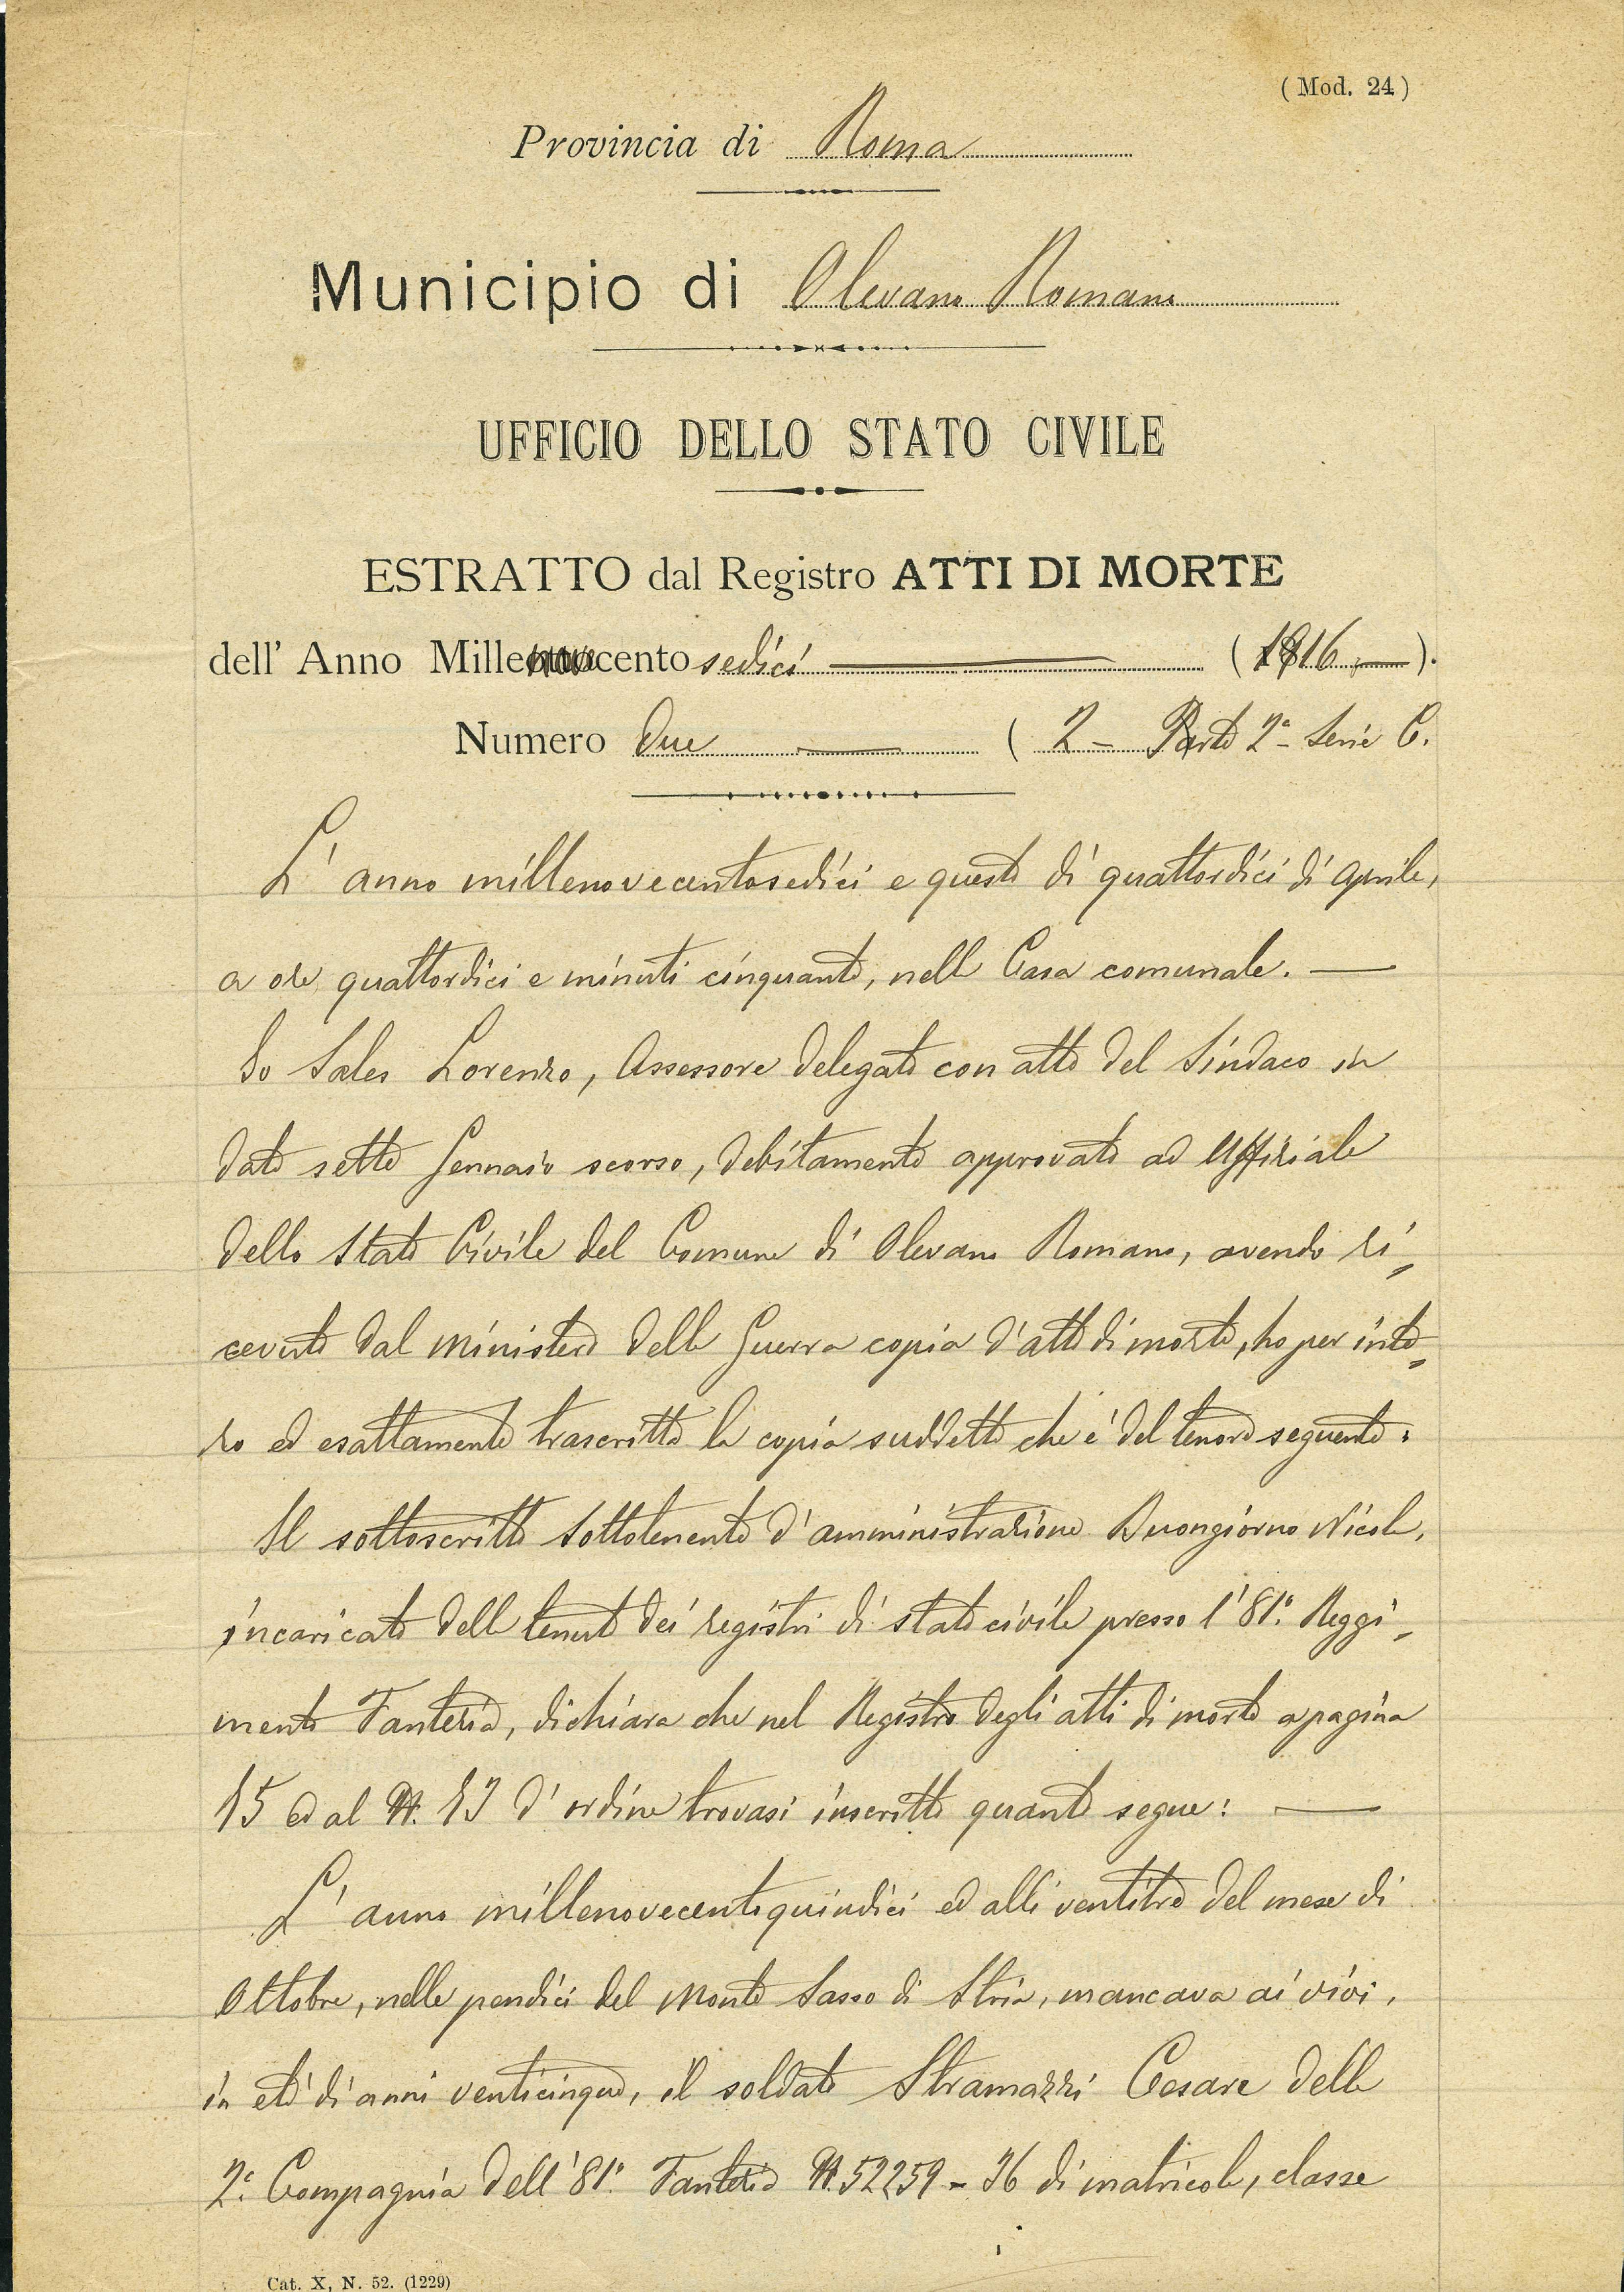 (Mod. 24)
Provincia di Roma
Municipio di Olevano Romano
UFFICIO DELLO STATO CIVILE
ESTRATTO dal Registro ATTI DI MORTE
dell' Anno Millenovecento sedici (1916).
Numero due ( 2 - Parte 2ª - Serie C.
L' anno millenovecentosedici e questo dì quattordici di Aprile,
a ore quattordici e minuti cinquanta, nella Casa comunale.
Io Sales Lorenzo, Assessore delegato con atto del Sindaco in
data sette Gennaio scorso, debitamente approvato ad Uffiziale
dello Stato Civile del Comune di Olevano Romano, avendo ri=
cevuto dal Ministero della Guerra copia d'atto di morte, ho per inte=
ro ed esattamente trascritto la copia suddetta che è del tenore seguente:
Il sottoscritto Sottotenente d'amministrazione Buongiorno Nicola,
incaricato della tenuta dei registri di stato civile presso l'81º Reggi=
mento Fanteria, dichiara che nel Registro degli atti di morte a pagina
15 ed al N. 13 d'ordine trovasi inscritto quanto segue:
L' anno millenovecentoquindici ed alli ventitre del mese di
Ottobre, nelle pendici del Monte Sasso di Stria, mancava ai vivi,
in età di anni venticinque, il soldato Stramazzi Cesare della
2ª Compagnia dell'81º Fanteria N. 52259 - 36 di matricola, classe
Cat. X, N. 52. (1229)